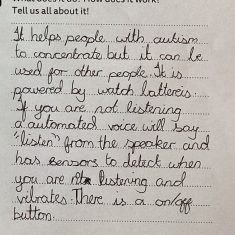 What does it do? How does it work?
Tell us all about it!
It helps people with autism
to concentrate but it can be
used for other people. It is
powered by watch batteries.
If you are not listening
a automated voice will say
"listen" from the speaker and
has sensors to detect when
you are listening and
vibrates. There is a on/off
button.